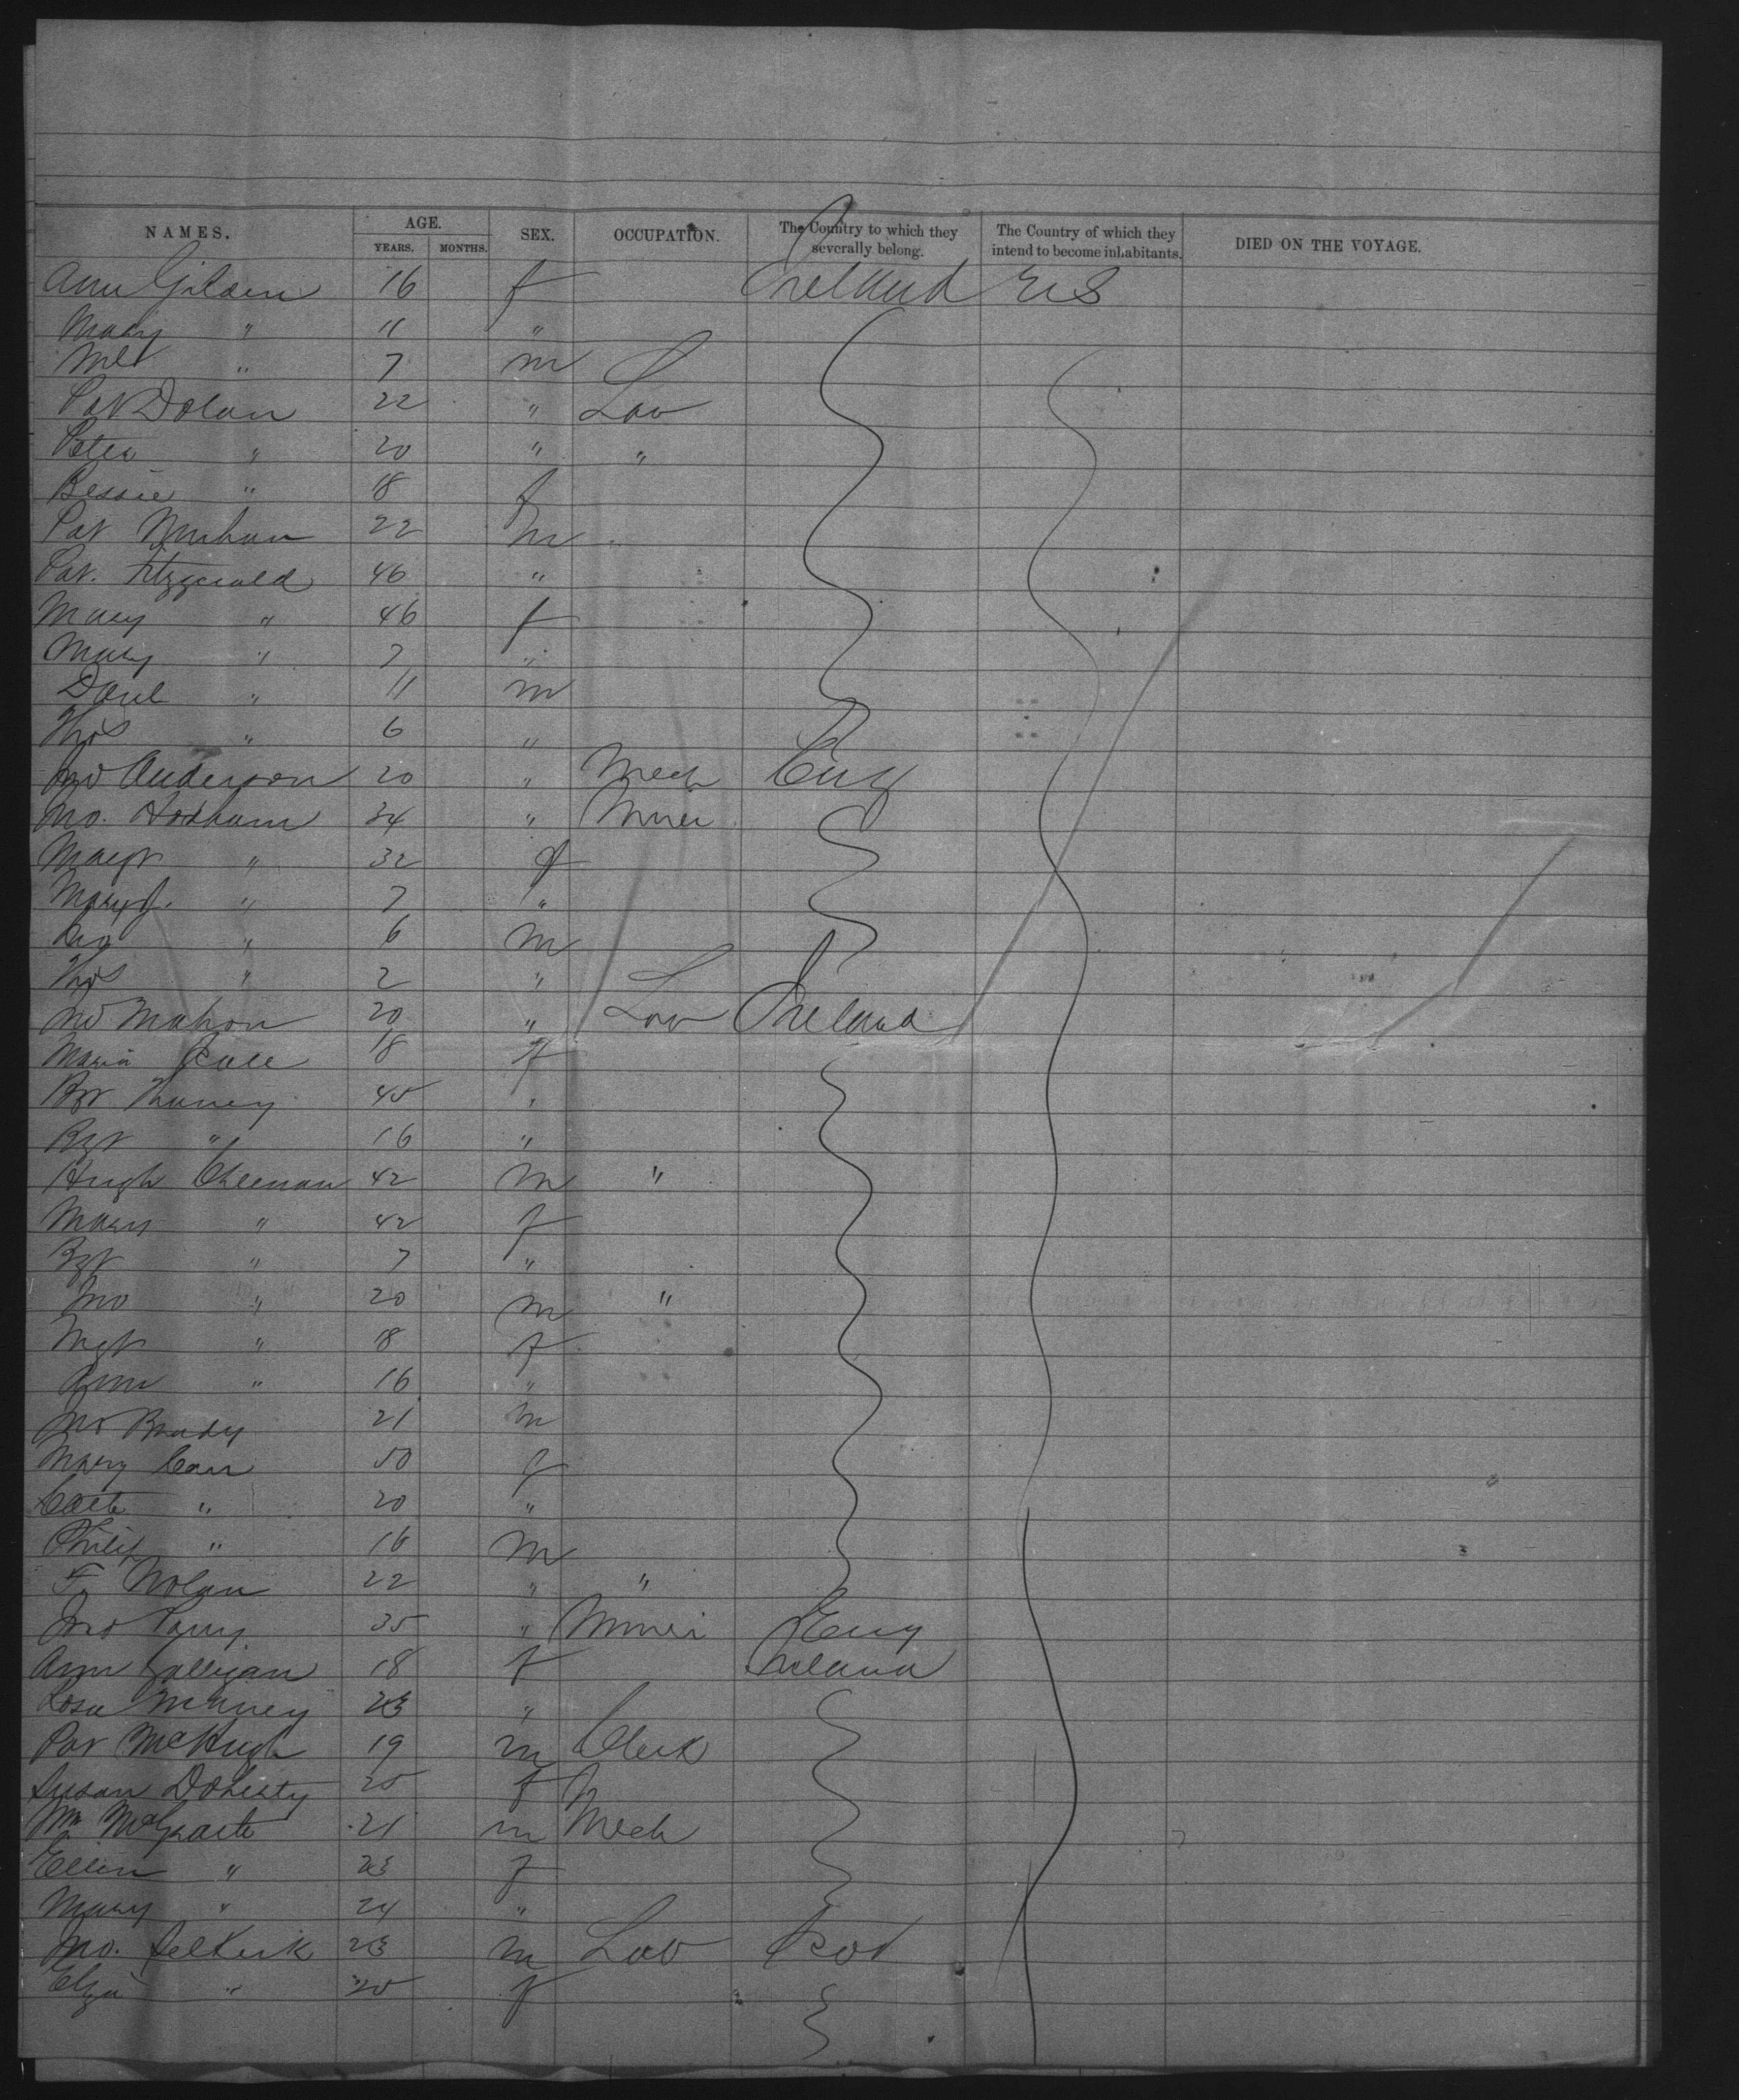 NAMES. AGE. YEARS. MONTHS. SEX. OCCUPATION. The Country to which they severally belong. The Country of which they intend to become inhabitants. DIED ON THE VOYAGE.
Ann Gilden 16 f Ireland U S
Mary " 11 "
Ml " 7 m
Pat Dolan 22 " Lab
Peter " 20 " "
Bessie " 18 f
Pat 22 m
Pat. Fitzgerald 46 "
Mary " 46 f
Mary " 7 "
Danl " 11 m
Thos " 6 "
Jno Anderson 20 " Mech Eng
Jno. Hodham 34 " Miner
Margt " 32 f
Mary J. " 7 "
Jno " 6 m
Thos " 2 "
Jno Mahon 20 " Lab Ireland
Maria 18 f
Bgt 45 "
Bgt " 16 "
Hugh 42 m "
Mary " 42 f
Bgt " 7 "
Jno " 20 m "
Mgt " 18 f
Ann " 16 "
Jno Brady 21 m
Mary Carr 50 f
Cath " 20 "
Philip " 16 m
F. Nolan 22 " "
Jno Parry 35 " Miner Eng
Ann Galligan 18 f Ireland
Rosa 23 "
Pat McHugh 19 m Clerk
Susan Doherty 25 f
Wm McGrath 21 m Mech
Ellen " 23 f
Mary " 24 "
Jno. Selkirk 23 m Lab Scot
Eliza " 20 f